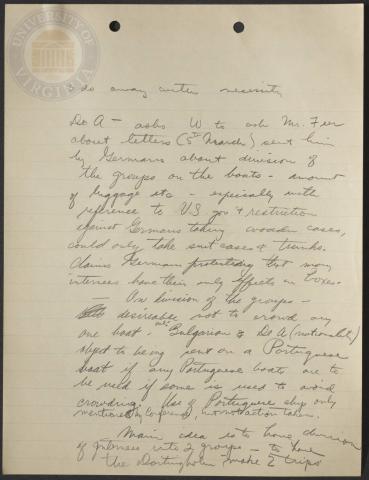 UNIVERSITY OF VIRGINIA
do away with necessity
De A - asks W to ask Mr. Feer
about letters (5th March) sent him
by Germans about division of
the groups on the boats - amount
of luggage etc - especially with
reference to US gov restriction
against Germans taking wooden cases,
could only take suit cases & trunks.
Claims Germans protesting that many
internees have their only effects in boxes.
- On division of the groups -
desirable not to crowd any
one boat. Bulgarian & De A (nationals)
object to being sent on a Portuguese
boat if any Portuguese boats are to
be used if some is used to avoid
crowding. Use of Portuguese ship only
mentioned by Conference, no action taken.
Main idea is to have division
of internees into 2 groups - to have
the Drottningholm make 2 trips